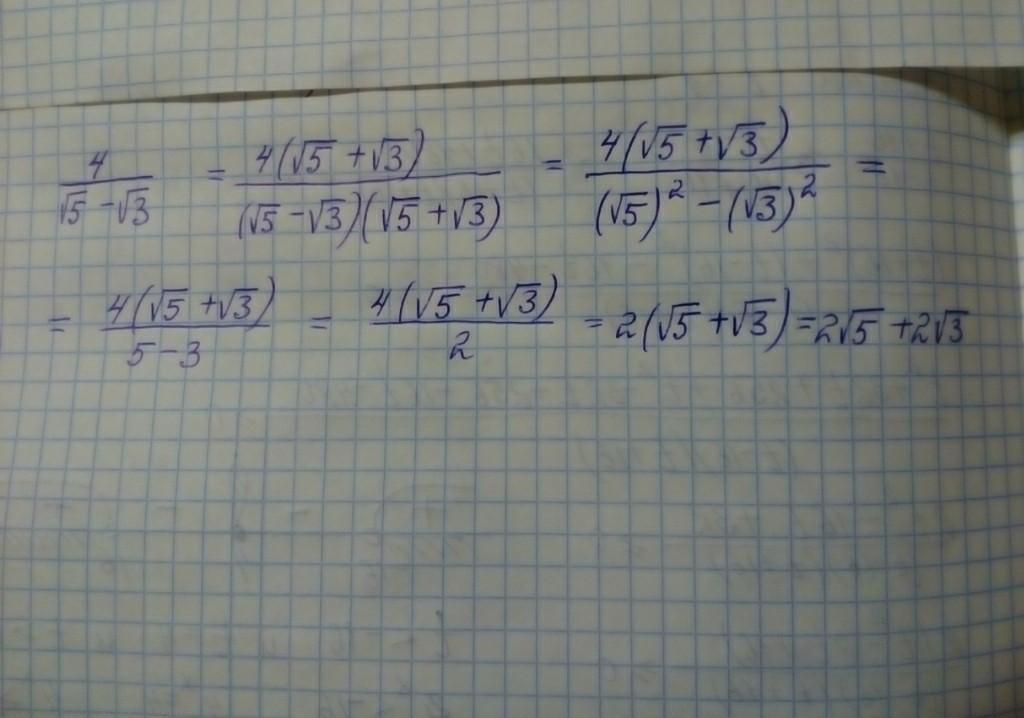 4/(√5 −√3) = 4(√5 +√3)/((√5 −√3)(√5 +√3)) = 4(√5 +√3)/((√5)² −(√3)²) =
= 4(√5 +√3)/(5−3) = 4(√5 +√3)/2 = 2(√5 +√3)=2√5 +2√3